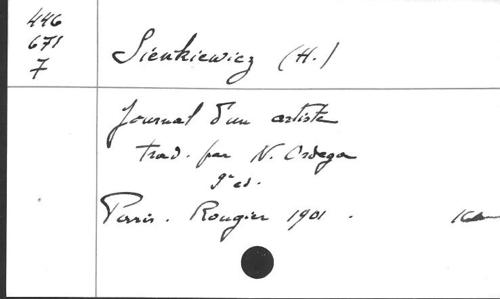 446
671
7
Sienkiewicz (H.)
Journal d'un artiste
trad. par N. Ordega
9e ed.
Paris. Rougier 1901.